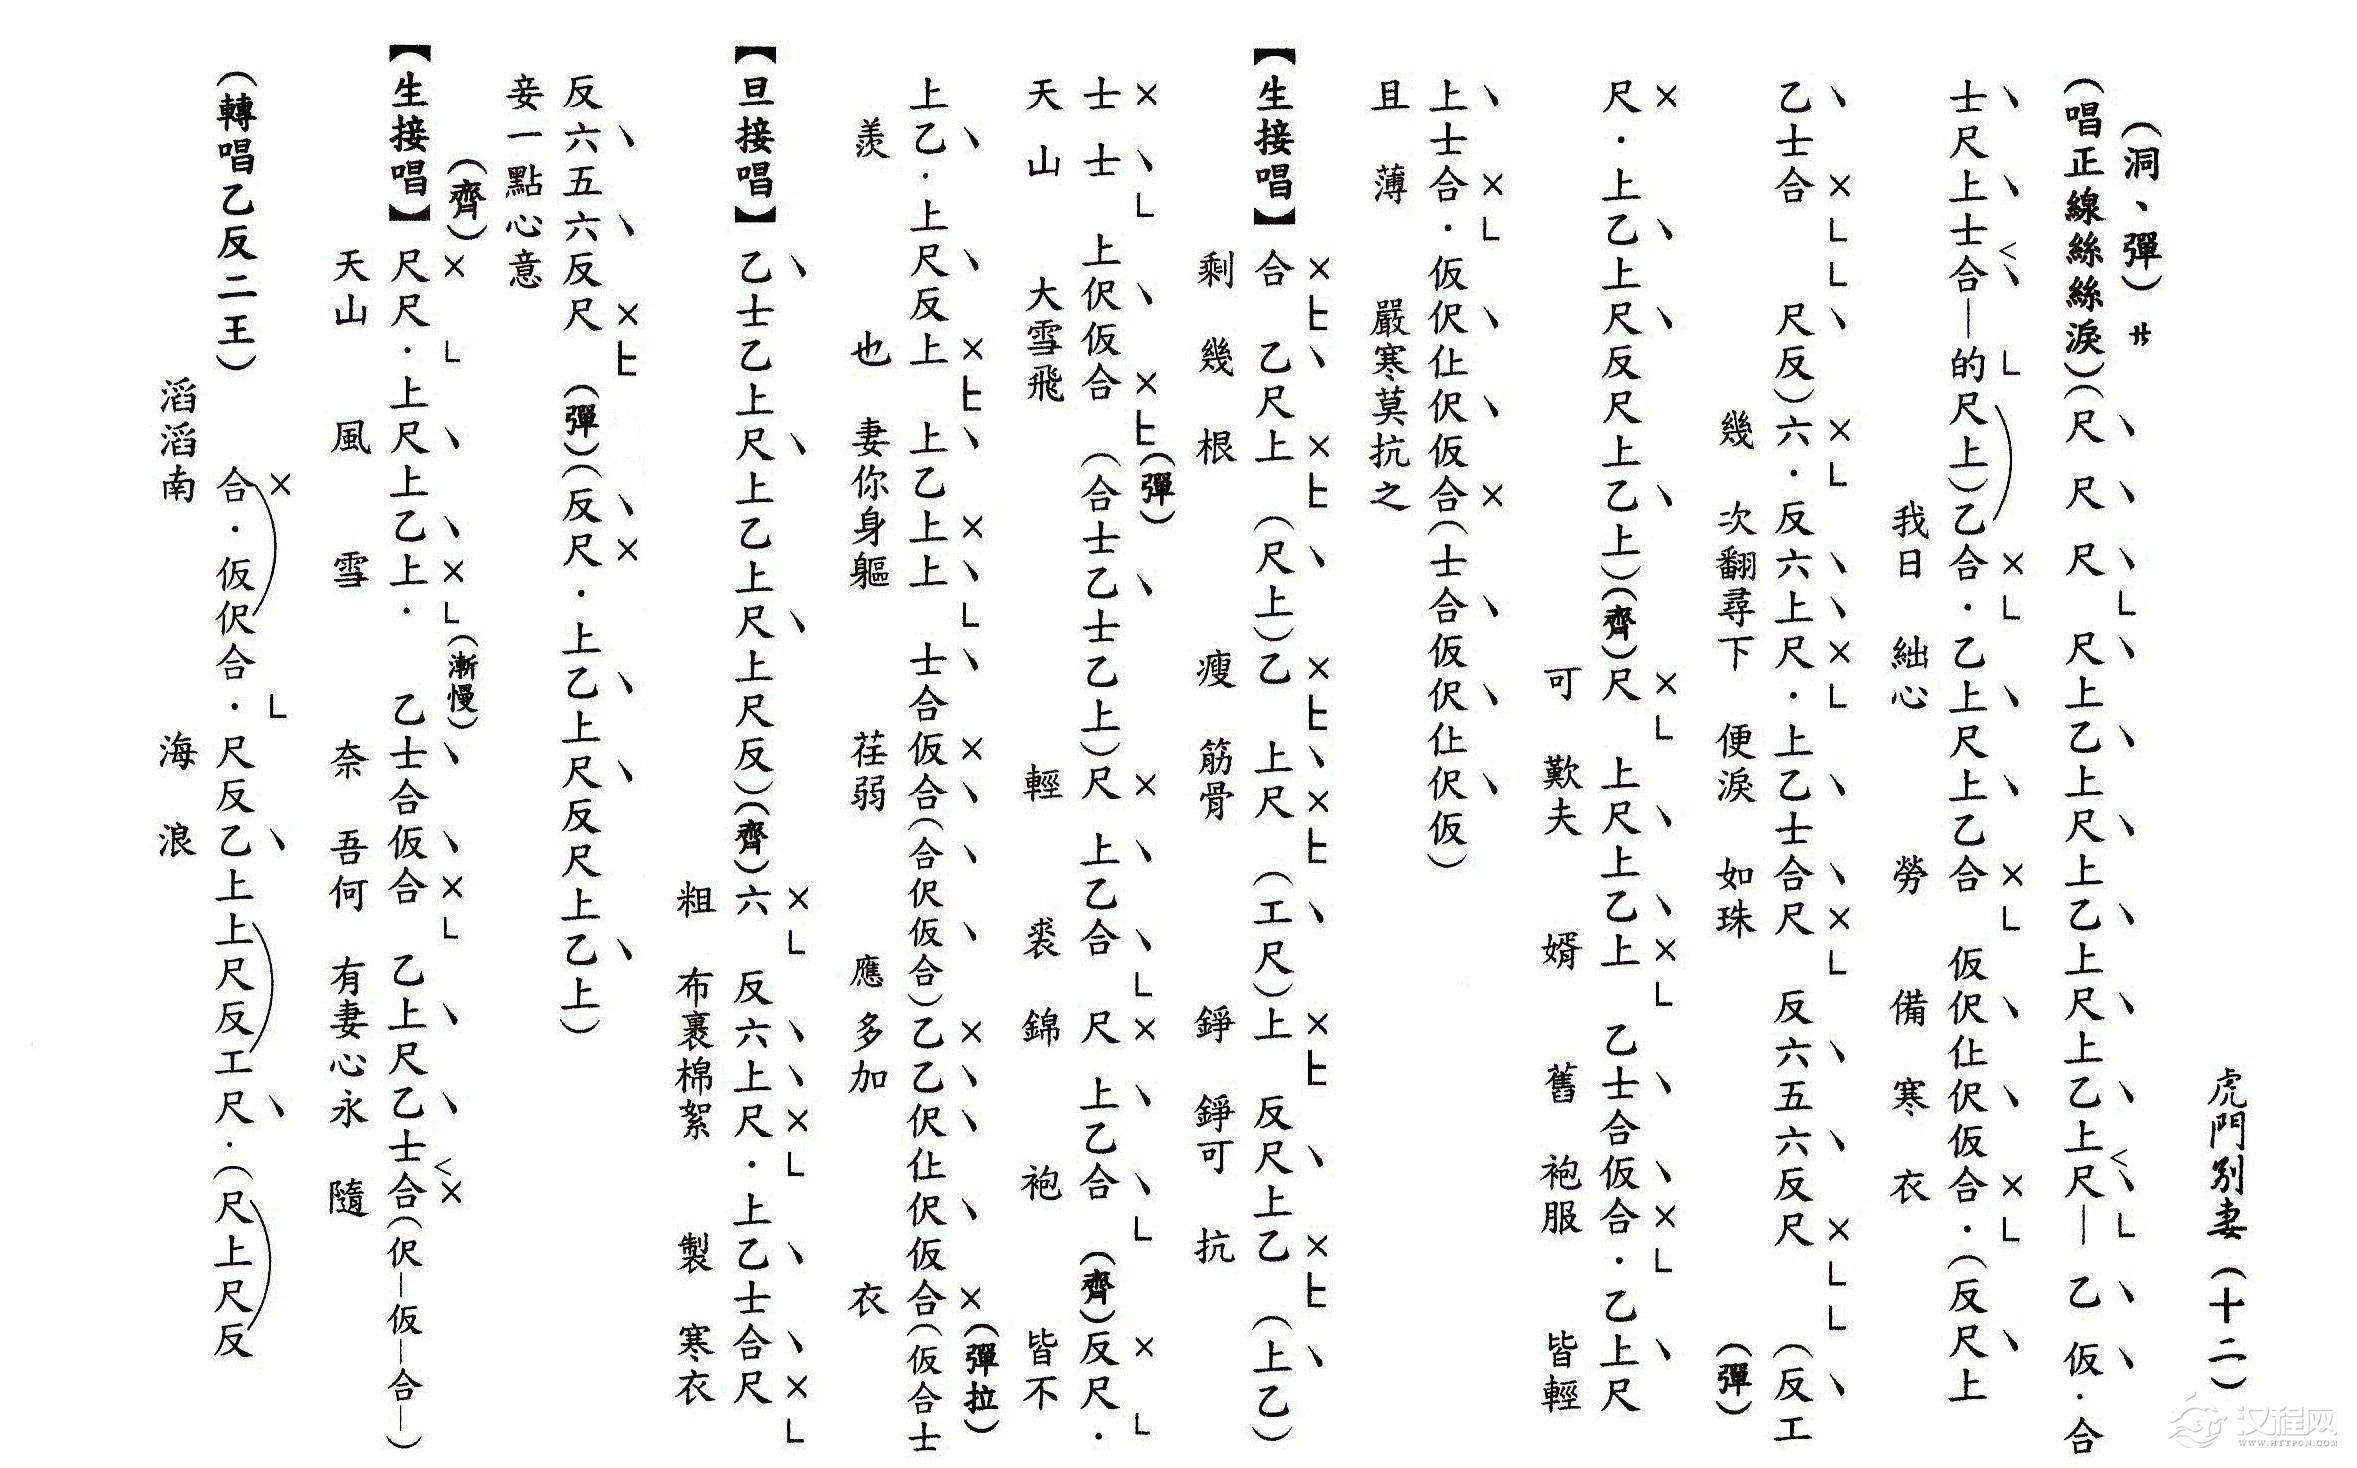 虎門別妻(十二)
(洞、彈)サ
(唱正線絲絲淚)(尺 尺 尺 尺上乙上尺上乙上尺上乙上尺— 乙 仮·合
士尺上士合—的尺上)乙合·乙上尺上乙合 仮伬仩伬仮合·(反尺上
我日 絀心 勞 備 寒 衣
乙士合 尺反)六·反六上尺·上乙士合尺 反六五六反尺 (反工
幾 次翻尋下 便淚 如珠 (彈)
尺·上乙上尺反尺上乙上)(齊)尺 上尺上乙上 乙士合仮合·乙上尺
可 歎夫 婿 舊 袍服 皆輕
上士合·仮伬仩伬仮合(士合仮伬仩伬仮)
且 薄 嚴寒莫抗之
【生接唱】合 乙尺上 (尺上)乙 上尺 (工尺)上 反尺上乙 (上乙)
剩 幾 根 瘦 筋骨 錚 錚可 抗
(彈)
士 士 上伬仮合 (合士乙士乙上)尺 上乙合 尺 上乙合 (齊)反尺·
天 山 大雪飛 輕 裘 錦 袍 皆不
(彈拉)
上乙·上尺反上 上乙上上 士合仮合(合伬仮合)乙乙伬仩伬仮合(仮合士
羨 也 妻你身軀 荏弱 應多加 衣
【旦接唱】乙士乙上尺上乙上尺上尺反)(齊)六 反六上尺·上乙士合尺
粗 布裹棉絮 製 寒衣
反六五六反尺 (彈)(反尺·上乙上尺反尺上乙上)
妾一點心意
(齊) (漸慢)
【生接唱】尺尺·上尺上乙上· 乙士合仮合 乙上尺乙士合(伬—仮—合—)
天山 風 雪 奈 吾何 有妻心永 隨
(轉唱乙反二王) 合·仮伬合·尺反乙上上尺反工尺·(尺上尺反
滔滔南 海 浪
汉程网
WWW.HTTPCN.COM